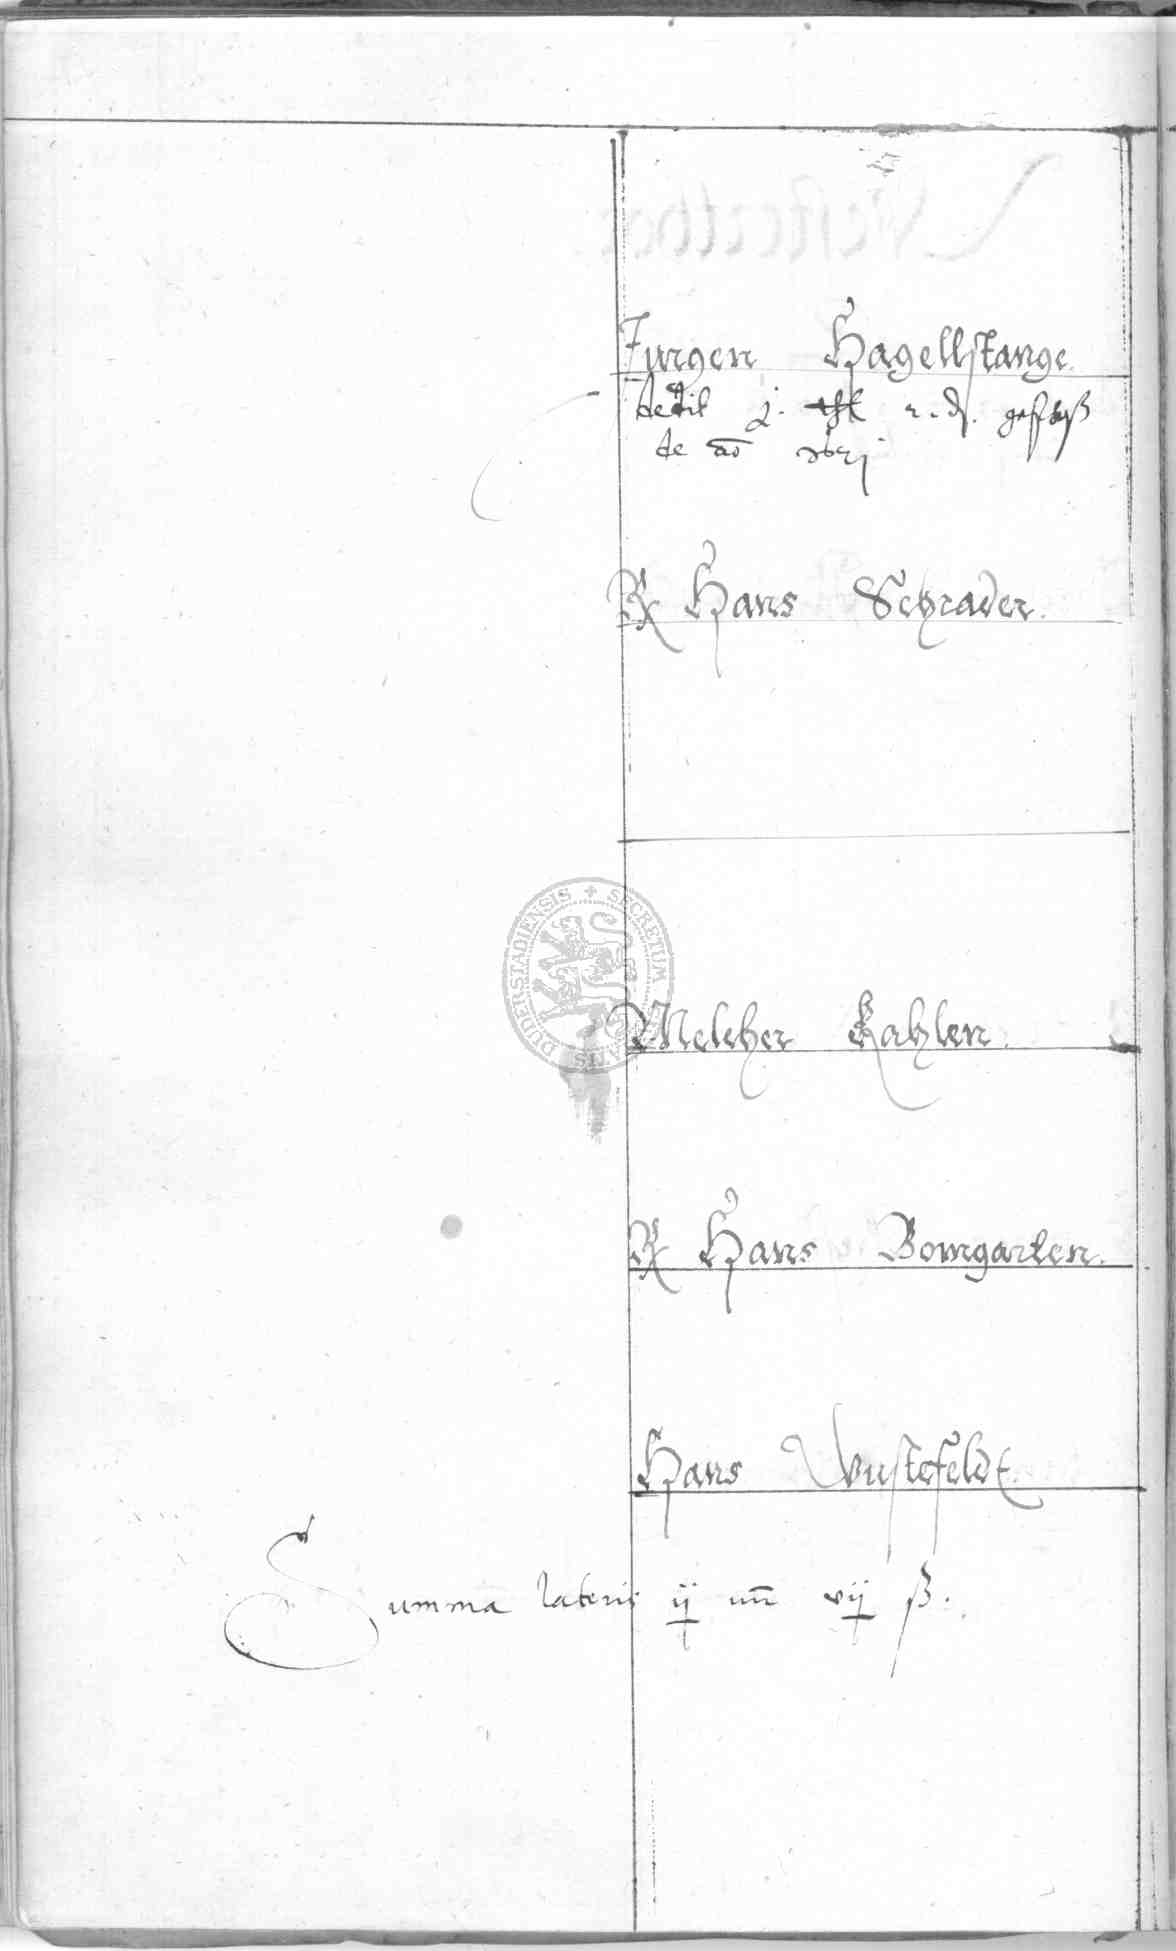 Jurgen Hagellstange.
dedit j. thl
de ao
Hans Schrader.
SECRETUM DUDERSTADIENSIS
Melcher Kahlen.
Hans Bomgarten.
Hans Wustefeldt
Summa lateris ij vij ß.